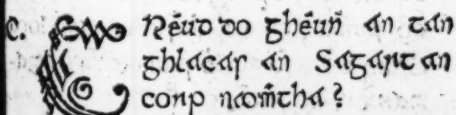 C. CRéud do ghéuñ an tan
ghlacas an Sagart an
corp naom̃tha?